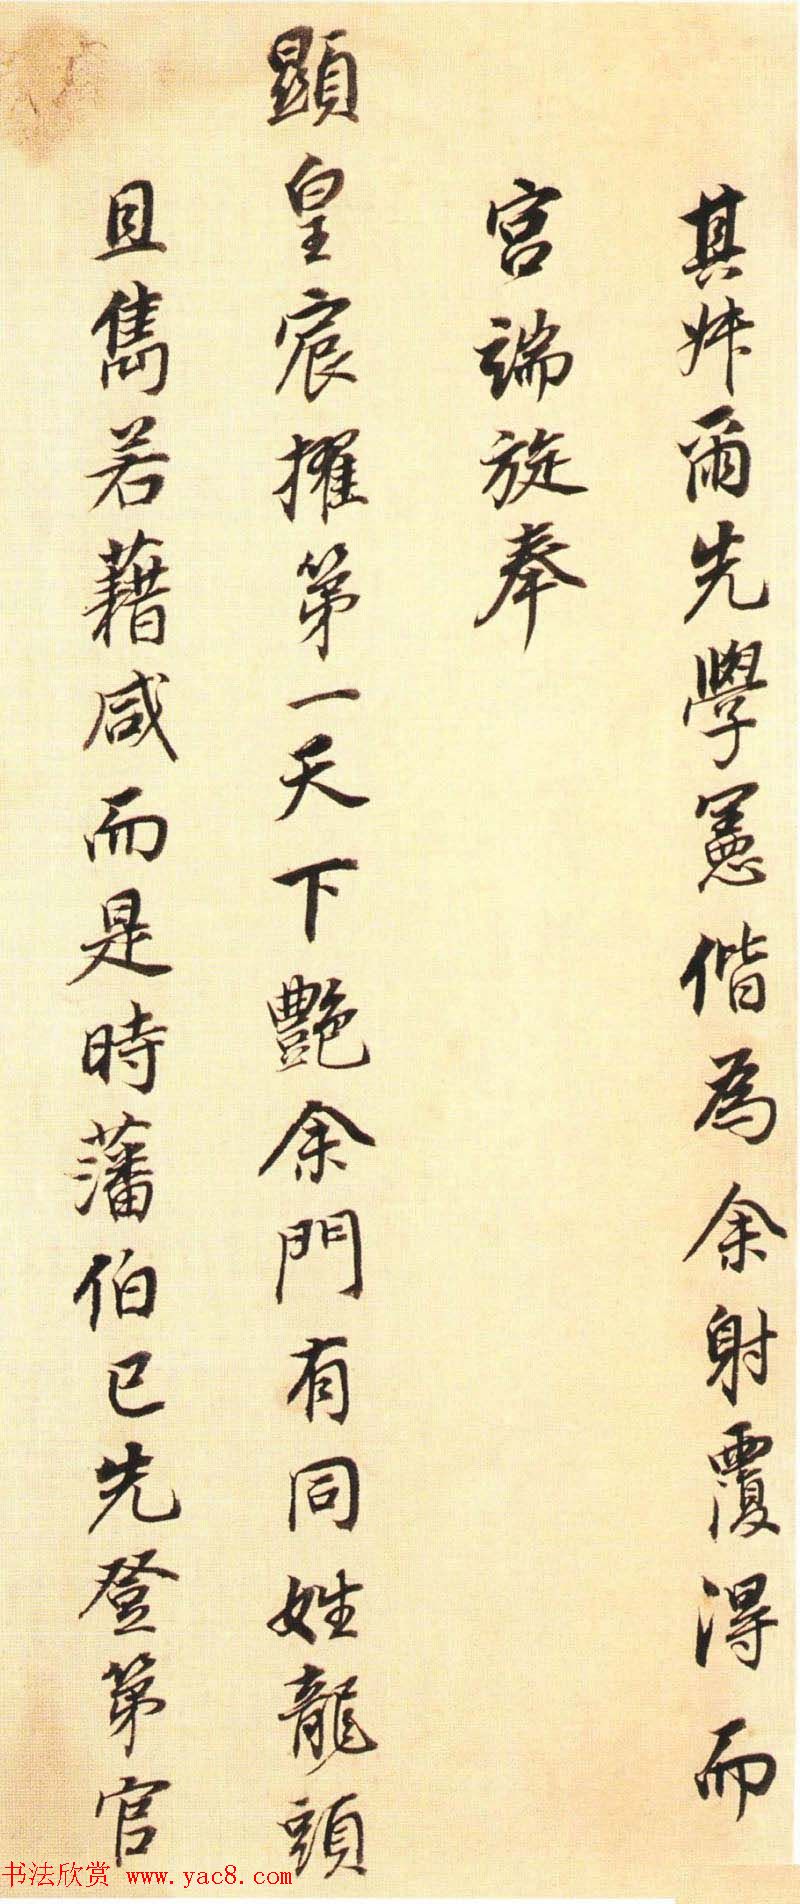 其姊爾先學憲偕為余射覆得而
宮端旋奉
顯皇宸擢第一天下艷余門有同姓龍頭
且雋若藉咸而是時藩伯已先登第官
书法欣赏 www.yac8.com